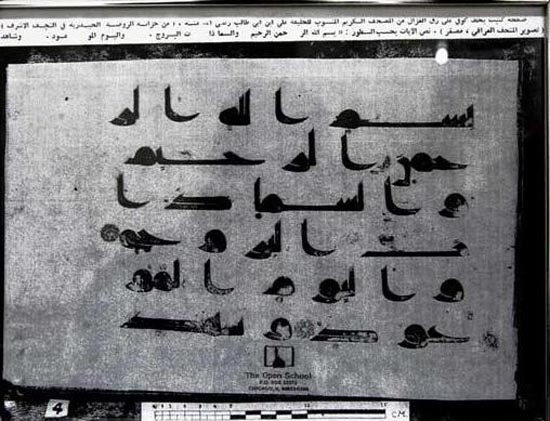 صفحة كتبت بخط كوفي على رق الغزال من المصحف الكريم المنسوب للخليفة علي ابن ابي طالب رضي الله عنه ، من خزانة الروضة الحيدرية في النجف الاشرف
( تصوير المتحف العراقي ، مصغر ) ، نص الآيات بحسب السطور : « بسم الله الر حمن الرحيم والسما ذا ت البروج ، واليوم المو عود ، وشاهد
بسم الله الر
حمن الرحيم
والسما ذا
ت البروج
واليوم المو
عود وشهد
The Open School
P.O. BOX
CHICAGO, IL
4
CM.